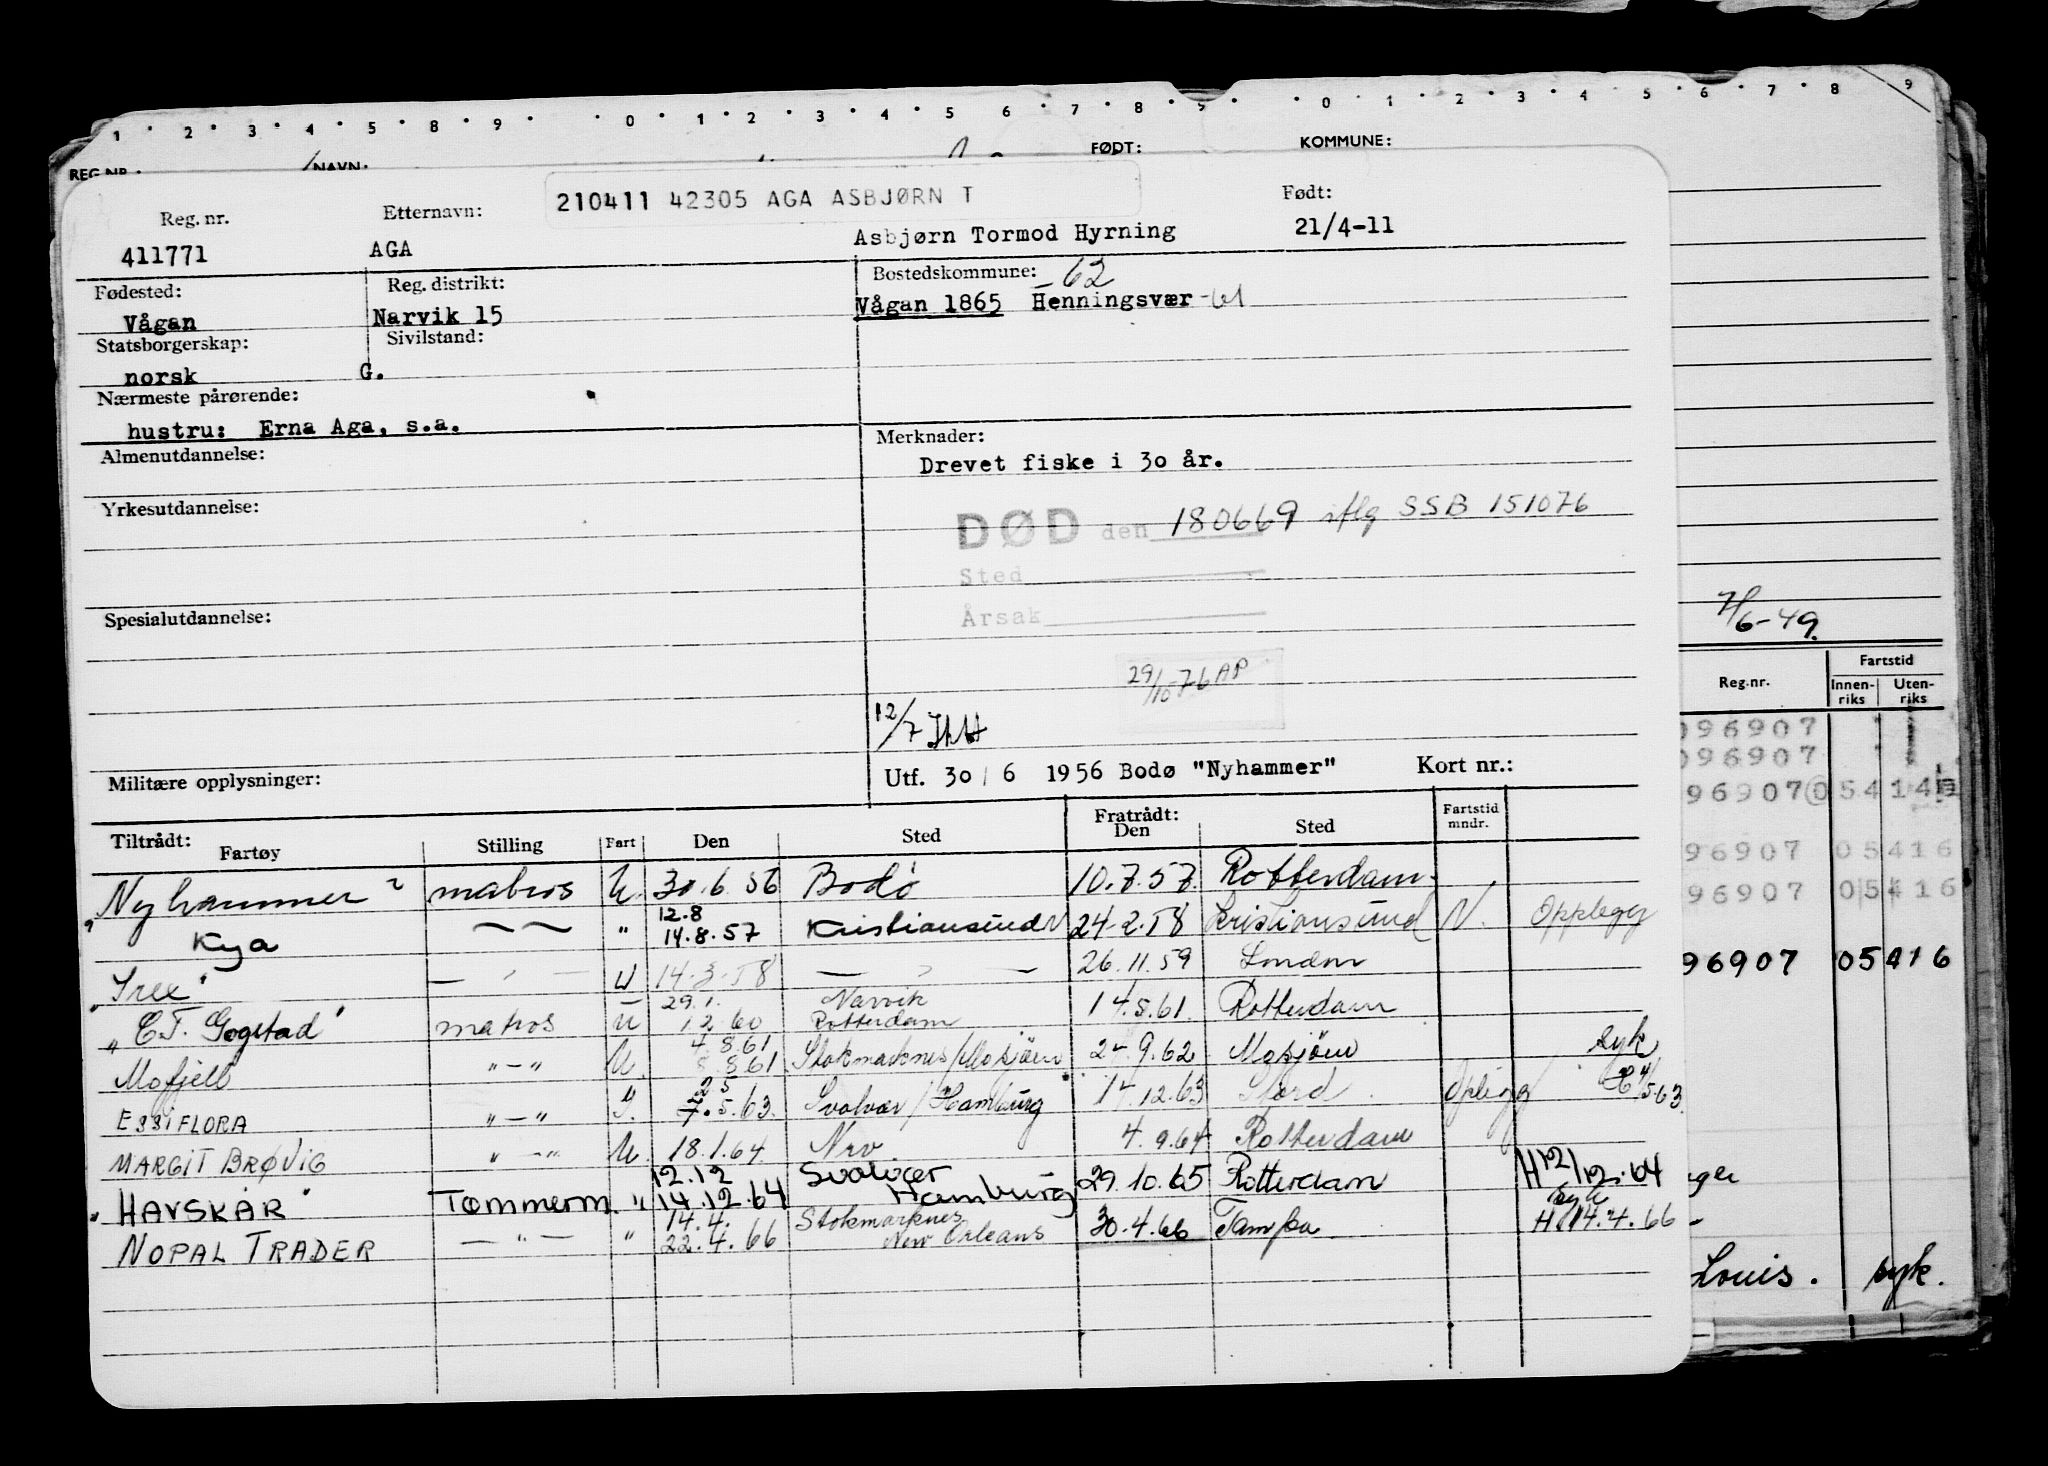 1 2 3 4 5 8 9 0 1 2 3 4 5 6 7 8 9 0 1 2 3 4 5 6 7 8 9
REG.NR.: NAVN: FØDT: KOMMUNE:
210411 42305 AGA ASBJØRN T
Reg. nr. Etternavn: Født:
411771 AGA Asbjørn Tormod Hyrning 21/4-11
Fødested: Reg. distrikt: Bostedskommune: 62
Vågan Narvik 15 Vågan 1865 Henningsvær -61
Statsborgerskap: Sivilstand:
norsk G.
Nærmeste pårørende:
hustru: Erna Aga, s.a.
Almenutdannelse: Merknader:
Drevet fiske i 30 år.
Yrkesutdannelse:
DØD den 180669 iflg SSB 151076
Sted
Spesialutdannelse: Årsak
7/6-49.
29/10-76 AP
12/7
Militære opplysninger: Utf. 30/6 1956 Bodø "Nyhammer" Kort nr.:
Tiltrådt: Fratrådt: Fartstid
Fartøy Stilling Fart Den Sted Den Sted mndr.
Nyhammer matros U. 30.6.56 Bodø 10.7.57. Rotterdam.
12.8
Kya " 14.8.57 Kristiansund N 24-2.58 Kristiansund N. Opplegg
"Tree" U 14.3.58 26.11.59 London
29.1. Narvik
"E.T. Gogstad" matros U 1.2.60 Rotterdam 14.5.61. Rotterdam
4.8.61 syk
Mofjell "-" U. 8.8.61. Stokmarknes/Mosjöen 24.9.62 Mosjöen
25
ESSI FLORA "-" 7.5.63. Svolvær/Hamburg 14.12.63 Stord Oplegg
MARGIT BRØVIG "-" U. 18.1.64. Nrv. 4.9.64 Rotterdam
12.12 Svolvær
"HAVSKÅR" Tømmerm. " 14.12.64 Hamburg 29.10.65 Rotterdam H 12/12.64
14.4. Stokmarknes syk
NOPAL TRADER -"- " 22.4.66 New Orleans 30.4.66 Tampa H 14.4.66
Reg.nr. Fartstid
Innen-riks Uten-riks
096907
096907
96907 0 54 14
96907 05416
96907 05416
96907 05416
Louis. syk.